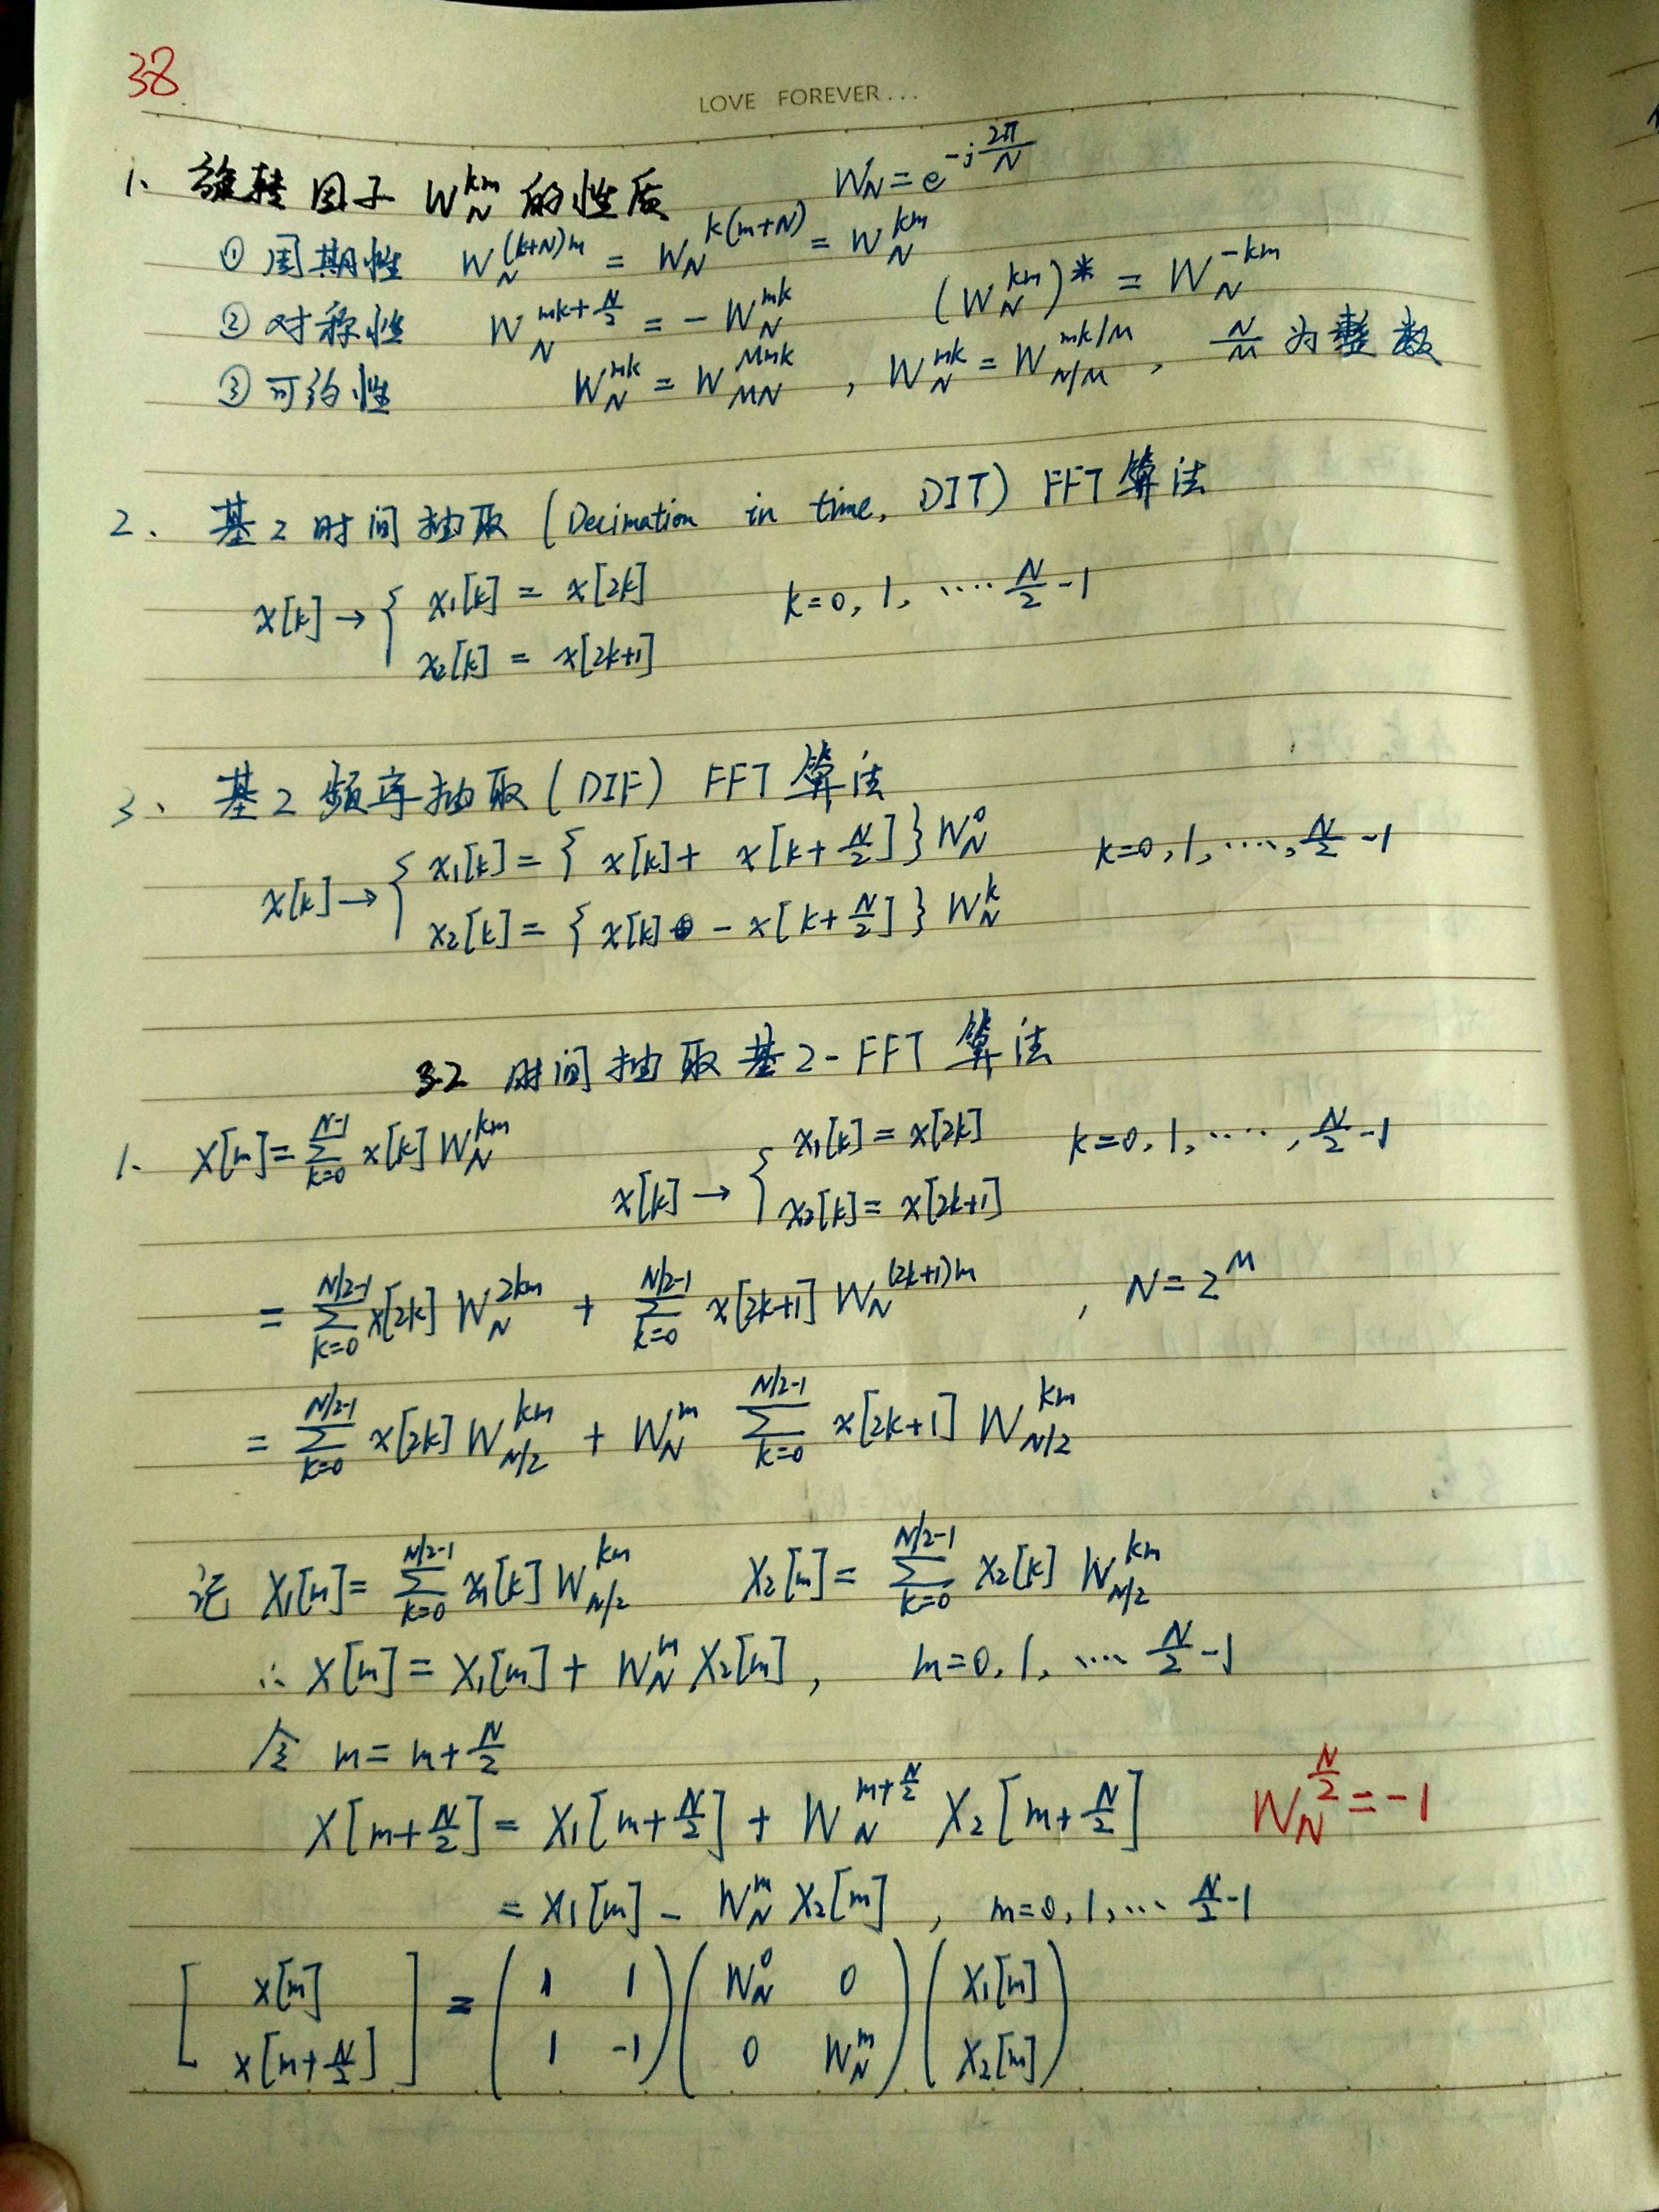 38
LOVE FOREVER...
1、旋转因子 W_N^{km} 的性质 W_N = e^{-j\frac{2π}{N}}
① 周期性 W_N^{(k+N)m} = W_N^{k(m+N)} = W_N^{km}
② 对称性 W_N^{mk+\frac{N}{2}} = -W_N^{mk} (W_N^{km})* = W_N^{-km}
③ 可约性 W_N^{mk} = W_{MN}^{Mmk} , W_N^{mk} = W_{N/M}^{mk/M} , \frac{N}{M} 为整数
2、基2时间抽取 (Decimation in time, DIT) FFT 算法
x[k] → { x_1[k] = x[2k] k=0, 1, ···· \frac{N}{2}-1
x_2[k] = x[2k+1]
3、基2频率抽取 (DIF) FFT 算法
x[k] → { x_1[k] = { x[k] + x[k+\frac{N}{2}] } W_N^0 k=0, 1, ····, \frac{N}{2}-1
x_2[k] = { x[k] - x[k+\frac{N}{2}] } W_N^k
3.2 时间抽取基2-FFT 算法
1. X[m] = \sum_{k=0}^{N-1} x[k] W_N^{km} x[k] → { x_1[k] = x[2k] k=0, 1, ····, \frac{N}{2}-1
x_2[k] = x[2k+1]
= \sum_{k=0}^{N/2-1} x[2k] W_N^{2km} + \sum_{k=0}^{N/2-1} x[2k+1] W_N^{(2k+1)m} , N = 2^M
= \sum_{k=0}^{N/2-1} x[2k] W_{N/2}^{km} + W_N^m \sum_{k=0}^{N/2-1} x[2k+1] W_{N/2}^{km}
记 X_1[m] = \sum_{k=0}^{N/2-1} x_1[k] W_{N/2}^{km} X_2[m] = \sum_{k=0}^{N/2-1} x_2[k] W_{N/2}^{km}
∴ X[m] = X_1[m] + W_N^m X_2[m] , m=0, 1, ···· \frac{N}{2}-1
令 m = m+\frac{N}{2}
X[m+\frac{N}{2}] = X_1[m+\frac{N}{2}] + W_N^{m+\frac{N}{2}} X_2[m+\frac{N}{2}] W_N^{\frac{N}{2}} = -1
= X_1[m] - W_N^m X_2[m] , m=0, 1, ··· \frac{N}{2}-1
[ X[m] ; X[m+\frac{N}{2}] ] = ( 1 1 ; 1 -1 ) ( W_N^0 0 ; 0 W_N^m ) ( X_1[m] ; X_2[m] )